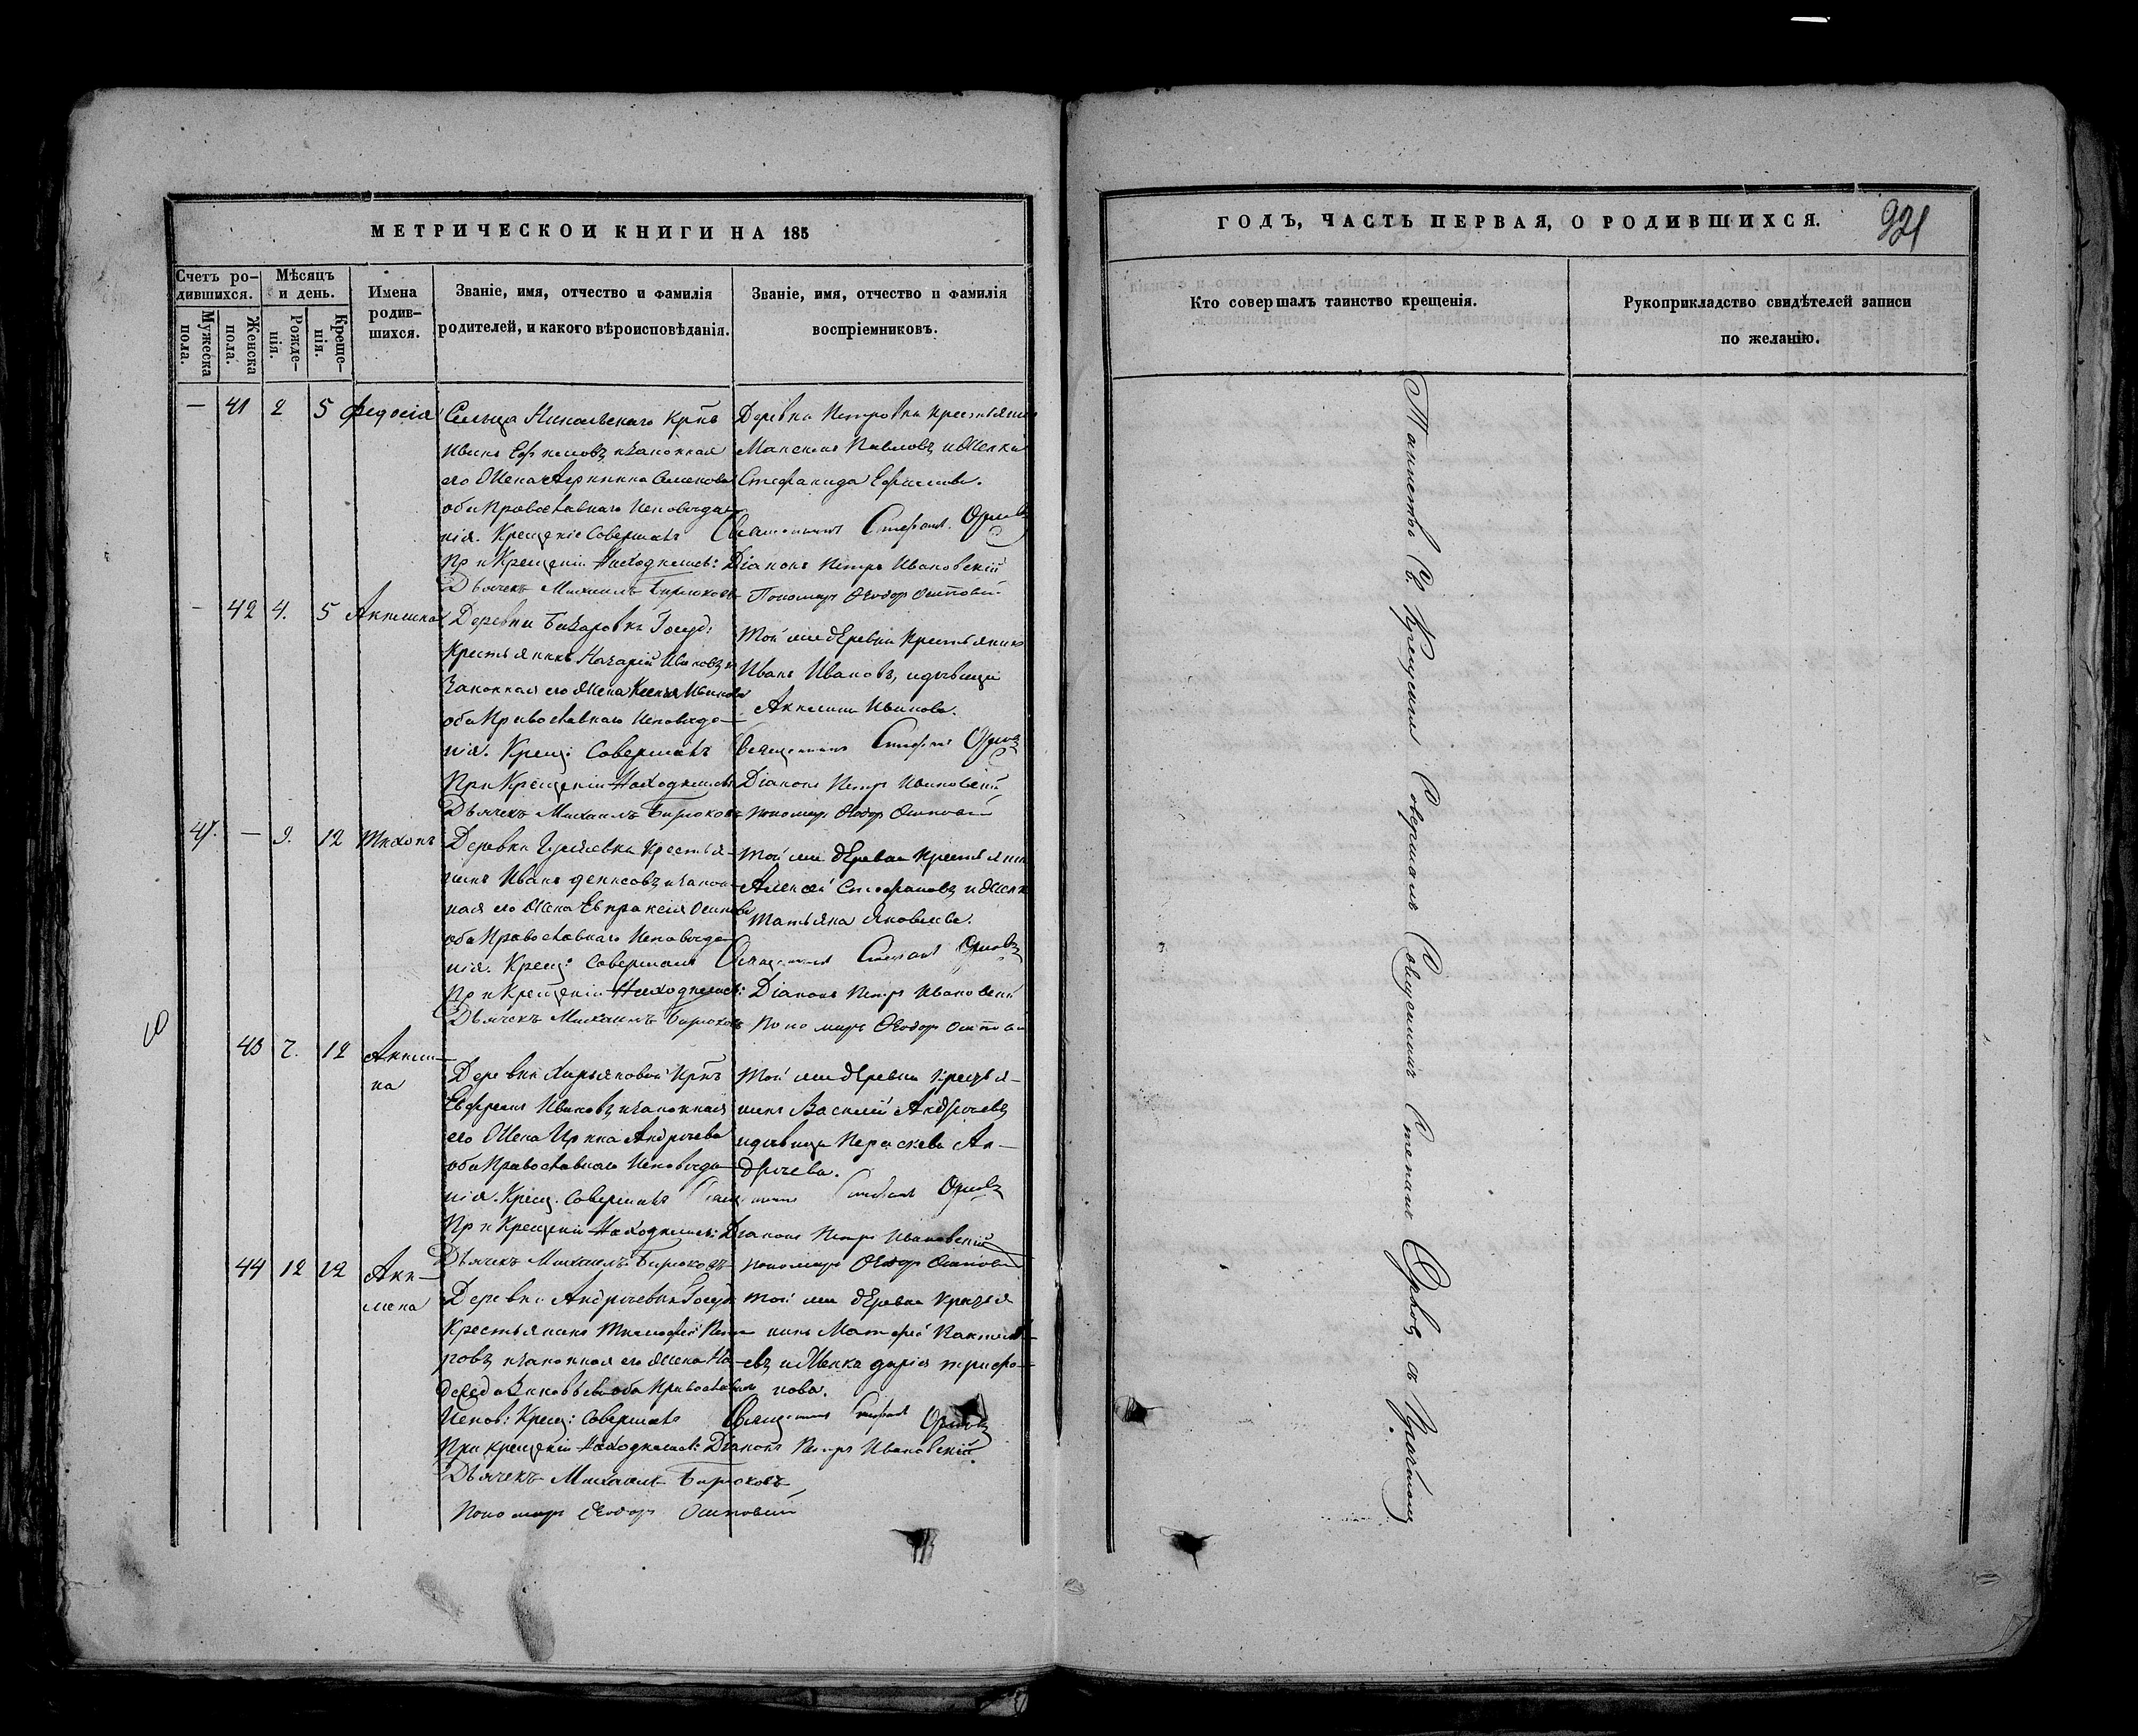 МЕТРИЧЕСКОЙ КНИГИ НА 185
Счетъ ро-
дившихся.
Мужеска
пола.
Женска
пола.
Мѣсяцъ
и день.
Рожде-
нія.
Креще-
нія.
Имена
родив-
шихся.
Званіе, имя, отчество и фамилія
родителей, и какого вѣроисповѣданія.
Званіе, имя, отчество и фамилія
воспріемниковъ.
— 41 2 5 Федосія
Сельца Никольскаго Крнъ
Иванъ Ефимовъ и законная
его жена Агрипина Семенова
оба Православнаго Исповѣда—
нія. Крещеніе Совершалъ
При Крещеніи находились:
Дьячекъ Михаилъ Бирюковъ
Деревни Петровки крестьянинъ
Павловъ и Женка
Стефанида Ефимова.
Священникъ Стефанъ Орловъ
Діаконъ Петръ Ивановскій
Пономарь Ѳеодоръ
— 42 4. 5 Акилина
Деревни Госуд:
Крестьянинъ Назарій Ивановъ и
Законная его жена Ксенья Иванова
оба Православнаго Исповѣда—
нія. Крещ: Совершалъ
При Крещеніи Находились
Дьячекъ Михаилъ Бирюковъ
Той же деревни крестьянинъ
Иванъ Ивановъ, и дѣвица
Акилина Иванова.
Священникъ Стефанъ Орловъ
Діаконъ Петръ Ивановскій
пономарь Ѳеодоръ
41. — 9. 12 Тихонъ
Деревни Крестья—
нинъ Иванъ денисовъ и закон—
ная его жена Евпраксія Осипова
оба Православнаго Исповѣда—
нія. Крещ: Совершалъ
При Крещеніи Находились:
Дьячекъ Михаилъ Бирюковъ
Той же деревни Крестьянинъ
Алексѣй Стефановъ и женка
Татьяна Яковлева.
Священникъ Стефанъ Орловъ
Діаконъ Петръ Ивановскій
Пономарь Ѳеодоръ
43 7. 12 Акили—
на
Деревни Крнъ
Евфремъ Ивановъ и законная
его Жена Ирина Андрѣева
оба Православнаго Исповѣда—
нія. Крещ. Совершалъ
При Крещеніи Находились:
Дьячекъ Михаилъ Бирюковъ
Той же деревни Крестья—
нинъ Василій Андрѣевъ
и дѣвица Параскева Ан—
дрѣева.
Священникъ Стефанъ Орловъ
Діаконъ Петръ Ивановскій
пономарь Ѳеодоръ
44 12 12 Аки—
лина
Деревни Андрѣевки Госуд
Крестьянинъ Тимофей Пет—
ровъ и законная его жена На—
дежда оба Православнаго
Испов: Крещ: Совершалъ
При крещеніи Находились:
Дьячекъ Михаилъ Бирюковъ
Той же деревни Крестья
нинъ Матфей
евъ и Женка дарія трифо—
нова.
Священникъ Стефанъ Орловъ
Діаконъ Петръ Ивановскій.
Пономарь Ѳеодоръ
ГОДЪ, ЧАСТЬ ПЕРВАЯ, О РОДИВШИХСЯ.
921
Кто совершалъ таинство крещенія.
Рукоприкладство свидѣтелей записи
по желанію.
Таинство Св. Крещенія Совершалъ Священникъ Стефанъ Орловъ съ Причтомъ